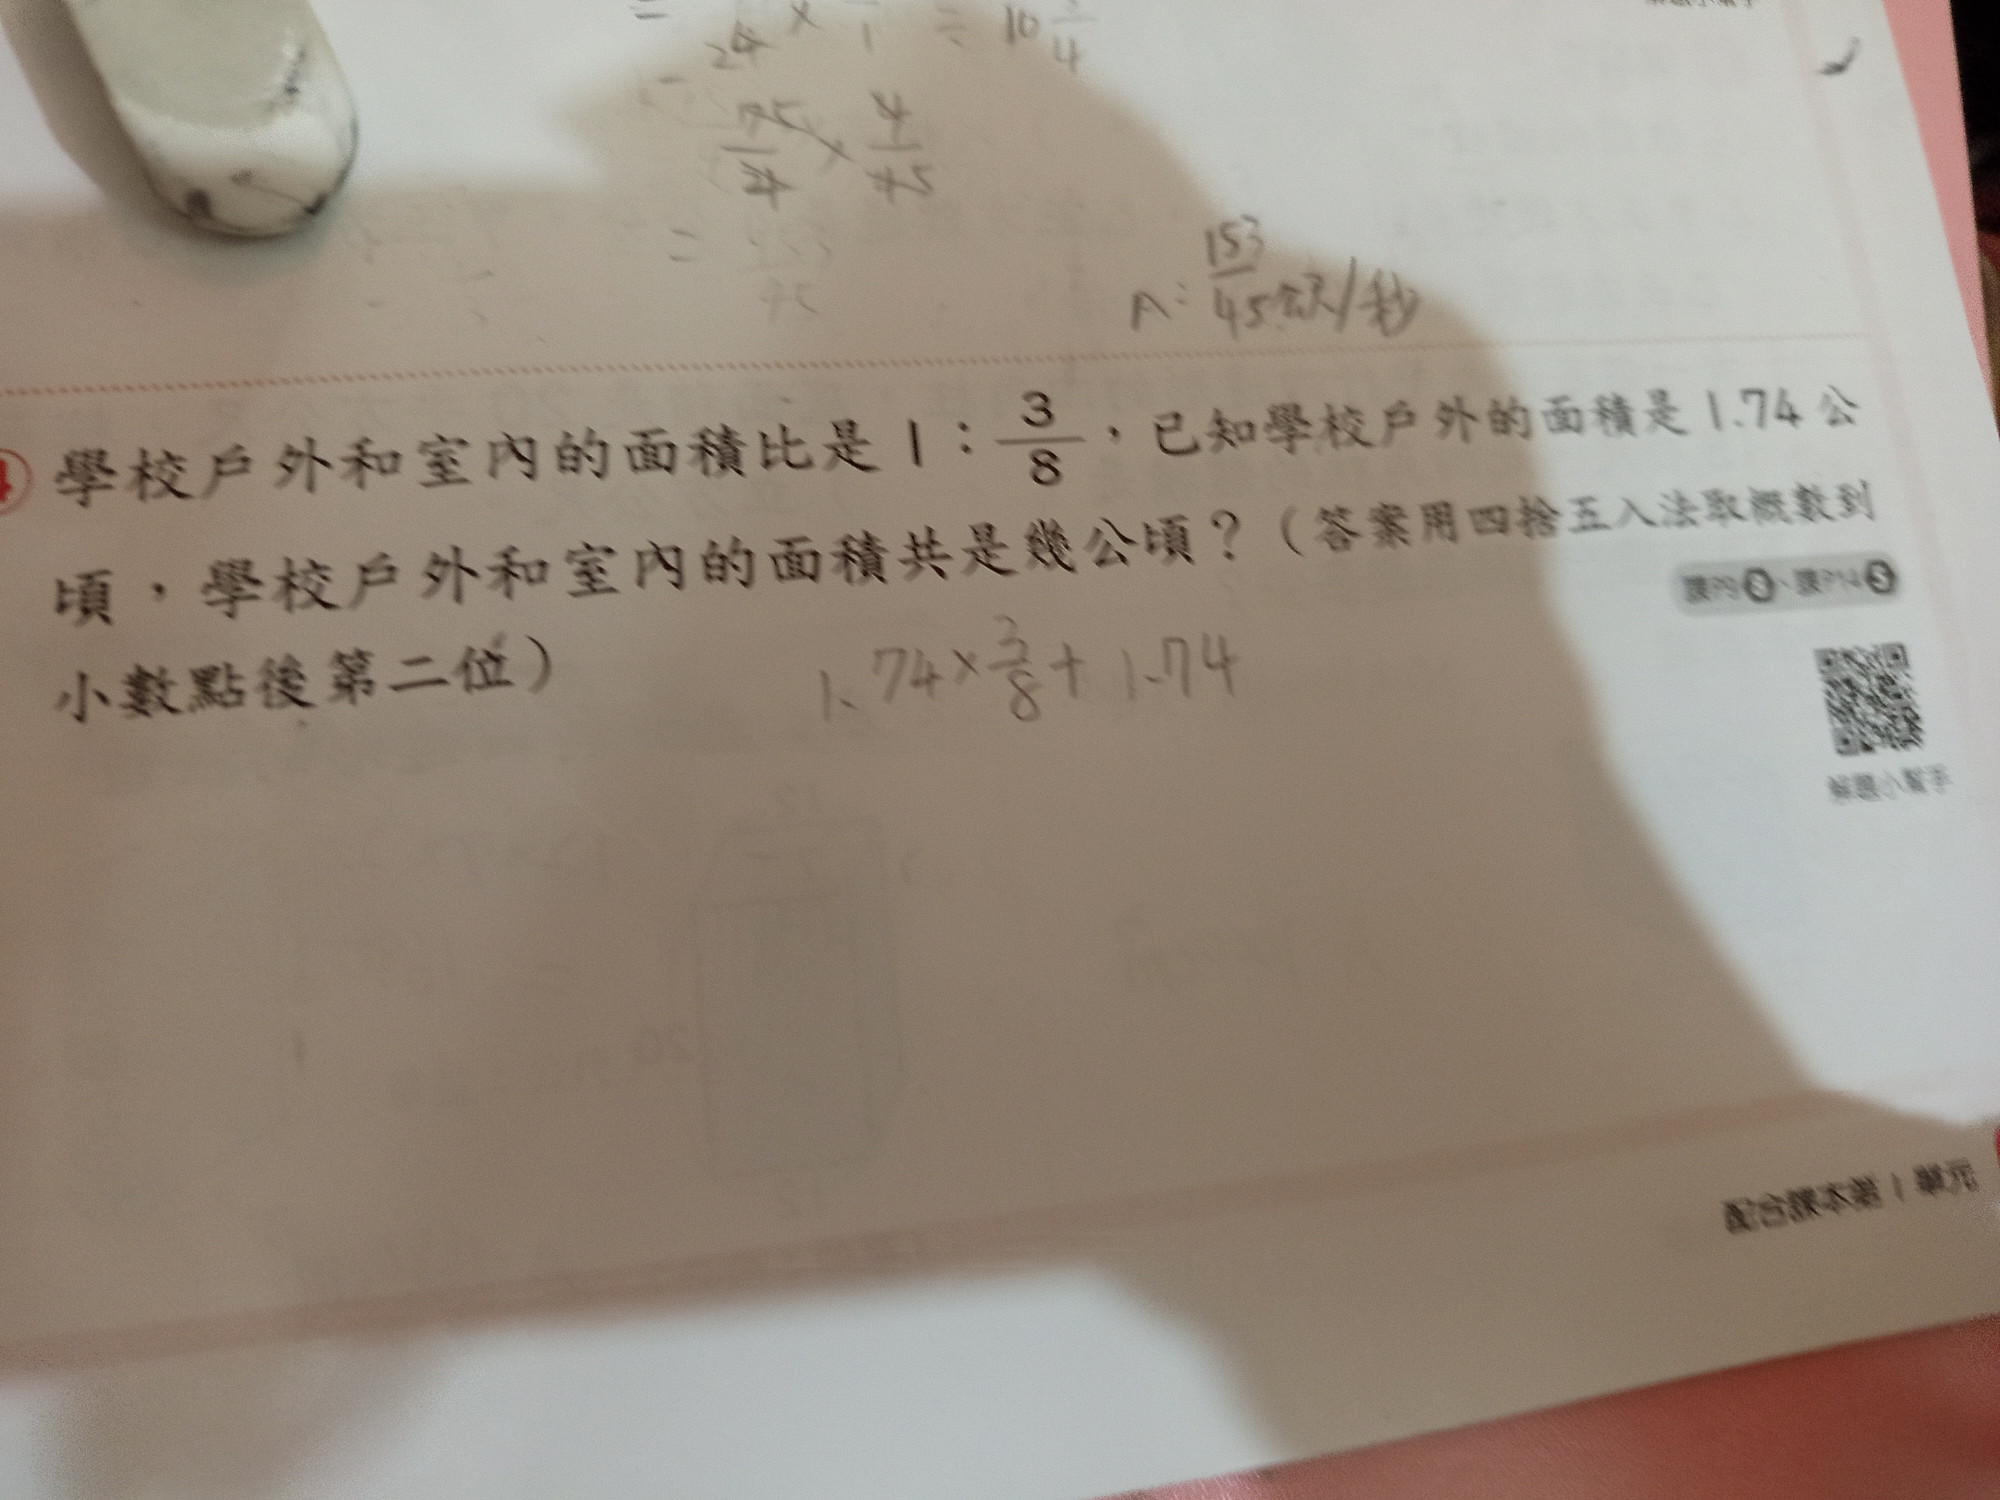 24 × 1 = 10 4
75/4 × 4/45
=
45
A: 153/45 公尺/秒
4 學校戶外和室內的面積比是 1：3/8，已知學校戶外的面積是 1.74 公
頃，學校戶外和室內的面積共是幾公頃？（答案用四捨五入法取概數到
課P9 2、課P14 5
小數點後第二位）
1.74 × 3/8 + 1.74
解題小幫手
配合課本第 1 單元